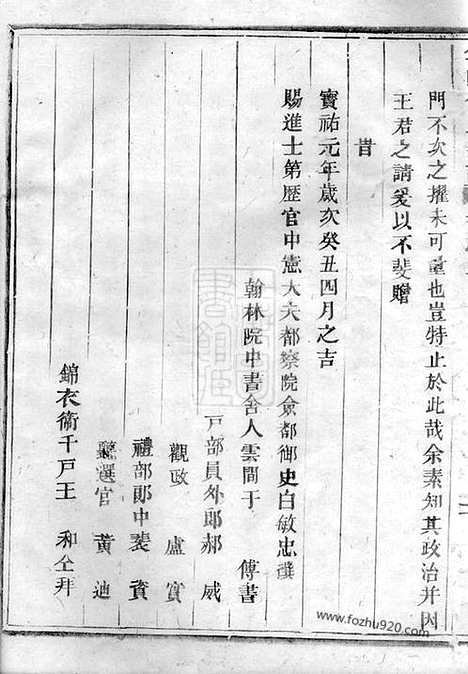 門不次之擢未可量也豈特止於此哉余素知其政治并因
王君之請爰以不斐贈
昔
寶祐元年歲次癸丑四月之吉
賜進士第歷官中憲大夫都察院僉都御史白敏忠撰
翰林院中書舍人雲間于 傅書
戸部員外郎郝 威
觀政 盧實
禮部郎中裴 賓
鑒選官 黃迪
錦衣衛千戸王 和仝拜
www.fozhu920.com